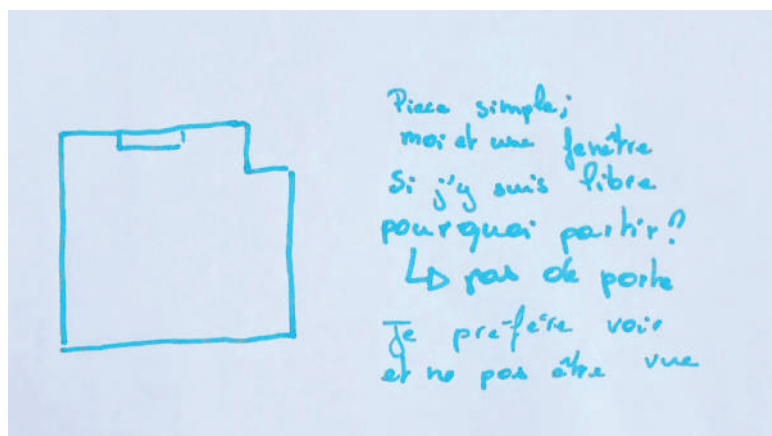 Piece simple;
moi et une fenêtre
Si j'y suis libre
pourquoi partir?
↳ pas de porte
Je préfère voir
et ne pas être vue